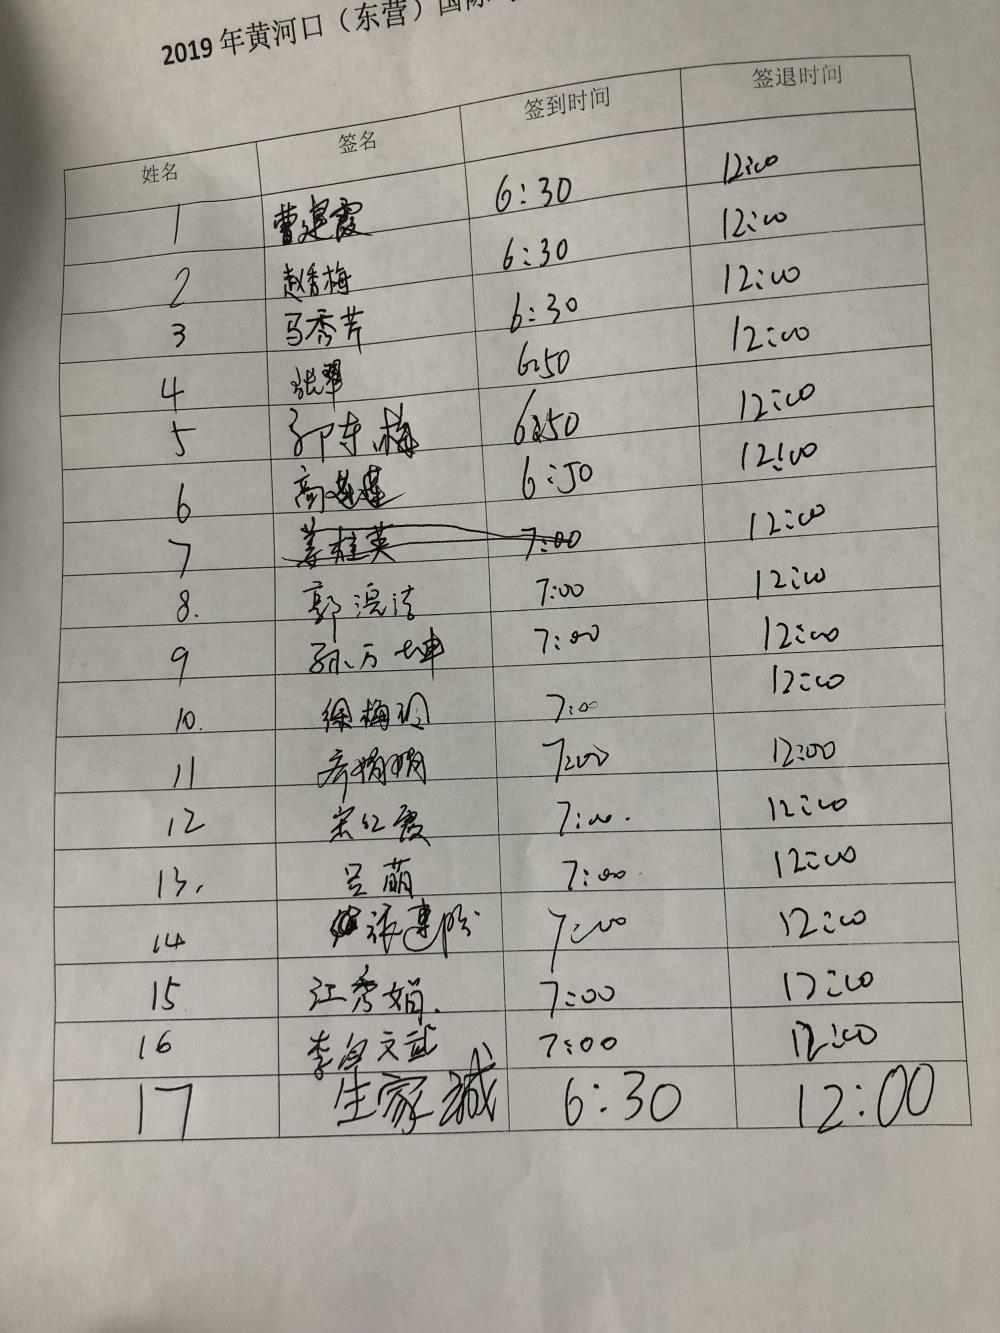 2019 年黄河口（东营）国际
姓名 签名 签到时间 签退时间
1 曹建霞 6:30 12:00
2 赵秀梅 6:30 12:00
3 马秀芹 6:30 12:00
4 张翠 6:50 12:00
5 邵东梅 6:50 12:00
6 高莲莲 6:50 12:00
7 姜桂英 7:00 12:00
8. 郭洁 7:00 12:00
9 孙万坤 7:00 12:00
10. 徐梅玲 7:00 12:00
11 齐娟娟 7:00 12:00
12 宋红霞 7:00. 12:00
13. 吴萌 7:00 12:00
14 张建 7:00 12:00
15. 江秀娟. 7:00 12:00
16 李文武 7:00 12:00
17 生家诚 6:30 12:00